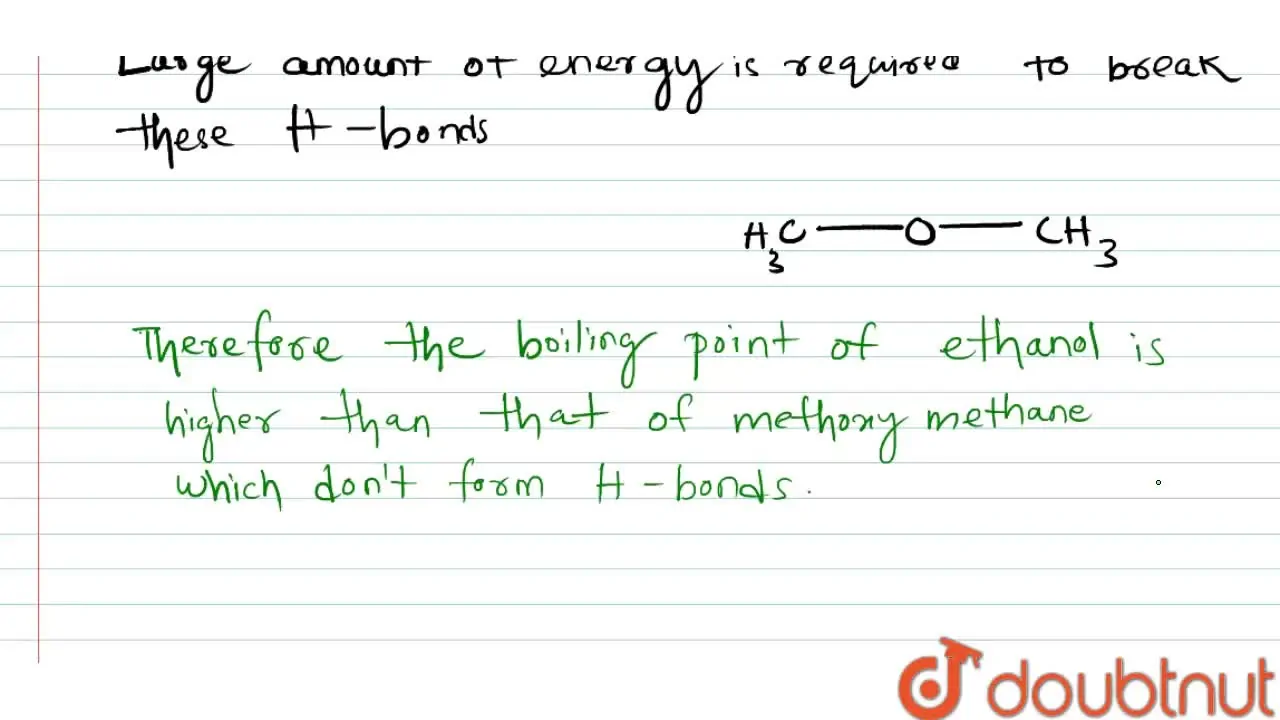 Large amount of energy is required to break
these H-bonds
H3C — O — CH3
Therefore the boiling point of ethanol is
higher than that of methoxy methane
which don't form H-bonds.
doubtnut